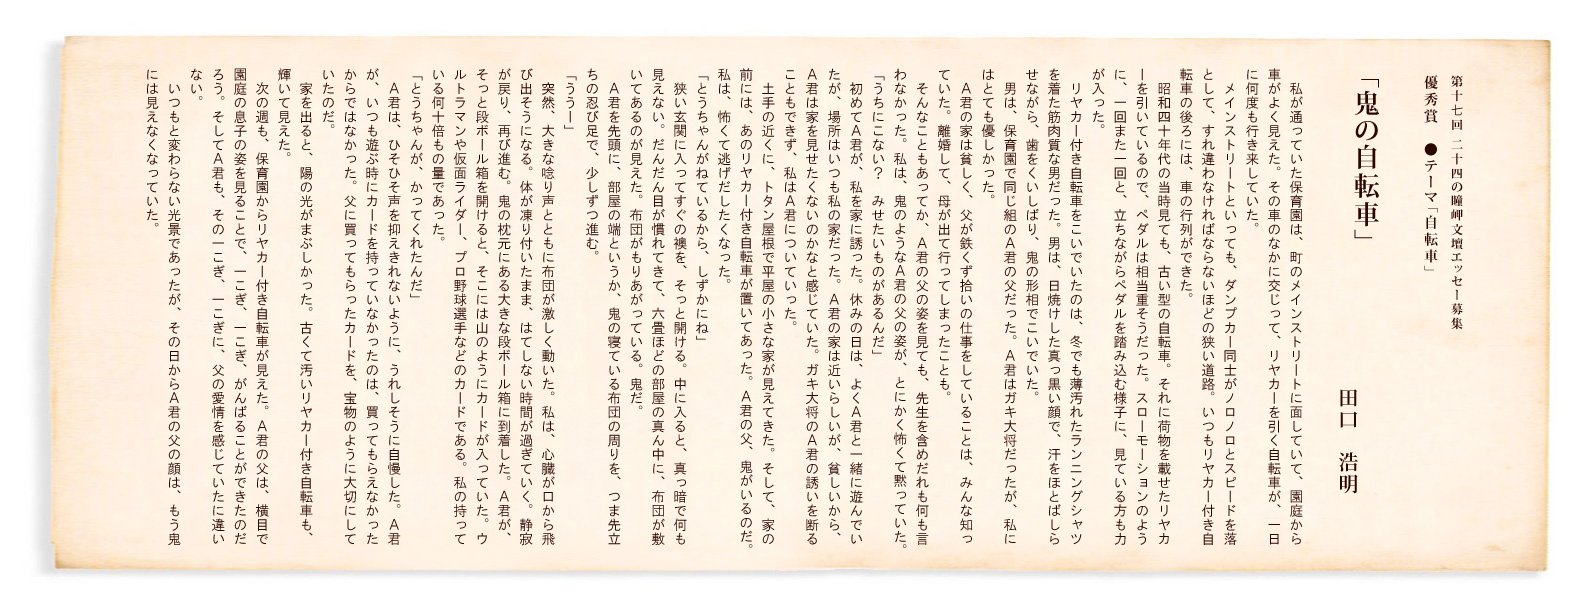 第十七回 二十四の瞳岬文壇エッセー募集
優秀賞 ●テーマ「自転車」
「鬼の自転車」
田口 浩明
私が通っていた保育園は、町のメインストリートに面していて、園庭から
車がよく見えた。その車のなかに交じって、リヤカーを引く自転車が、一日
に何度も行き来していた。
メインストリートといっても、ダンプカー同士がノロノロとスピードを落
として、すれ違わなければならないほどの狭い道路。いつもリヤカー付き自
転車の後ろには、車の行列ができた。
昭和四十年代の当時見ても、古い型の自転車。それに荷物を載せたリヤカ
ーを引いているので、ペダルは相当重そうだった。スローモーションのよう
に、一回また一回と、立ちながらペダルを踏み込む様子に、見ている方も力
が入った。
リヤカー付き自転車をこいでいたのは、冬でも薄汚れたランニングシャツ
を着た筋肉質な男だった。男は、日焼けした真っ黒い顔で、汗をほとばしら
せながら、歯をくいしばり、鬼の形相でこいでいた。
男は、保育園で同じ組のA君の父だった。A君はガキ大将だったが、私に
はとても優しかった。
A君の家は貧しく、父が鉄くず拾いの仕事をしていることは、みんな知っ
ていた。離婚して、母が出て行ってしまったことも。
そんなこともあってか、A君の父の姿を見ても、先生を含めだれも何も言
わなかった。私は、鬼のようなA君の父の姿が、とにかく怖くて黙っていた。
「うちにこない？ みせたいものがあるんだ」
初めてA君が、私を家に誘った。休みの日は、よくA君と一緒に遊んでい
たが、場所はいつも私の家だった。A君の家は近いらしいが、貧しいから、
A君は家を見せたくないのかなと感じていた。ガキ大将のA君の誘いを断る
こともできず、私はA君についていった。
土手の近くに、トタン屋根で平屋の小さな家が見えてきた。そして、家の
前には、あのリヤカー付き自転車が置いてあった。A君の父、鬼がいるのだ。
私は、怖くて逃げだしたくなった。
「とうちゃんがねているから、しずかにね」
狭い玄関に入ってすぐの襖を、そっと開ける。中に入ると、真っ暗で何も
見えない。だんだん目が慣れてきて、六畳ほどの部屋の真ん中に、布団が敷
いてあるのが見えた。布団がもりあがっている。鬼だ。
A君を先頭に、部屋の端というか、鬼の寝ている布団の周りを、つま先立
ちの忍び足で、少しずつ進む。
「ううー」
突然、大きな唸り声とともに布団が激しく動いた。私は、心臓が口から飛
び出そうになる。体が凍り付いたまま、はてしない時間が過ぎていく。静寂
が戻り、再び進む。鬼の枕元にある大きな段ボール箱に到着した。A君が、
そっと段ボール箱を開けると、そこには山のようにカードが入っていた。ウ
ルトラマンや仮面ライダー、プロ野球選手などのカードである。私の持って
いる何十倍もの量であった。
「とうちゃんが、かってくれたんだ」
A君は、ひそひそ声を抑えきれないように、うれしそうに自慢した。A君
が、いつも遊ぶ時にカードを持っていなかったのは、買ってもらえなかった
からではなかった。父に買ってもらったカードを、宝物のように大切にして
いたのだ。
家を出ると、陽の光がまぶしかった。古くて汚いリヤカー付き自転車も、
輝いて見えた。
次の週も、保育園からリヤカー付き自転車が見えた。A君の父は、横目で
園庭の息子の姿を見ることで、一こぎ、一こぎ、がんばることができたのだ
ろう。そしてA君も、その一こぎ、一こぎに、父の愛情を感じていたに違い
ない。
いつもと変わらない光景であったが、その日からA君の父の顔は、もう鬼
には見えなくなっていた。